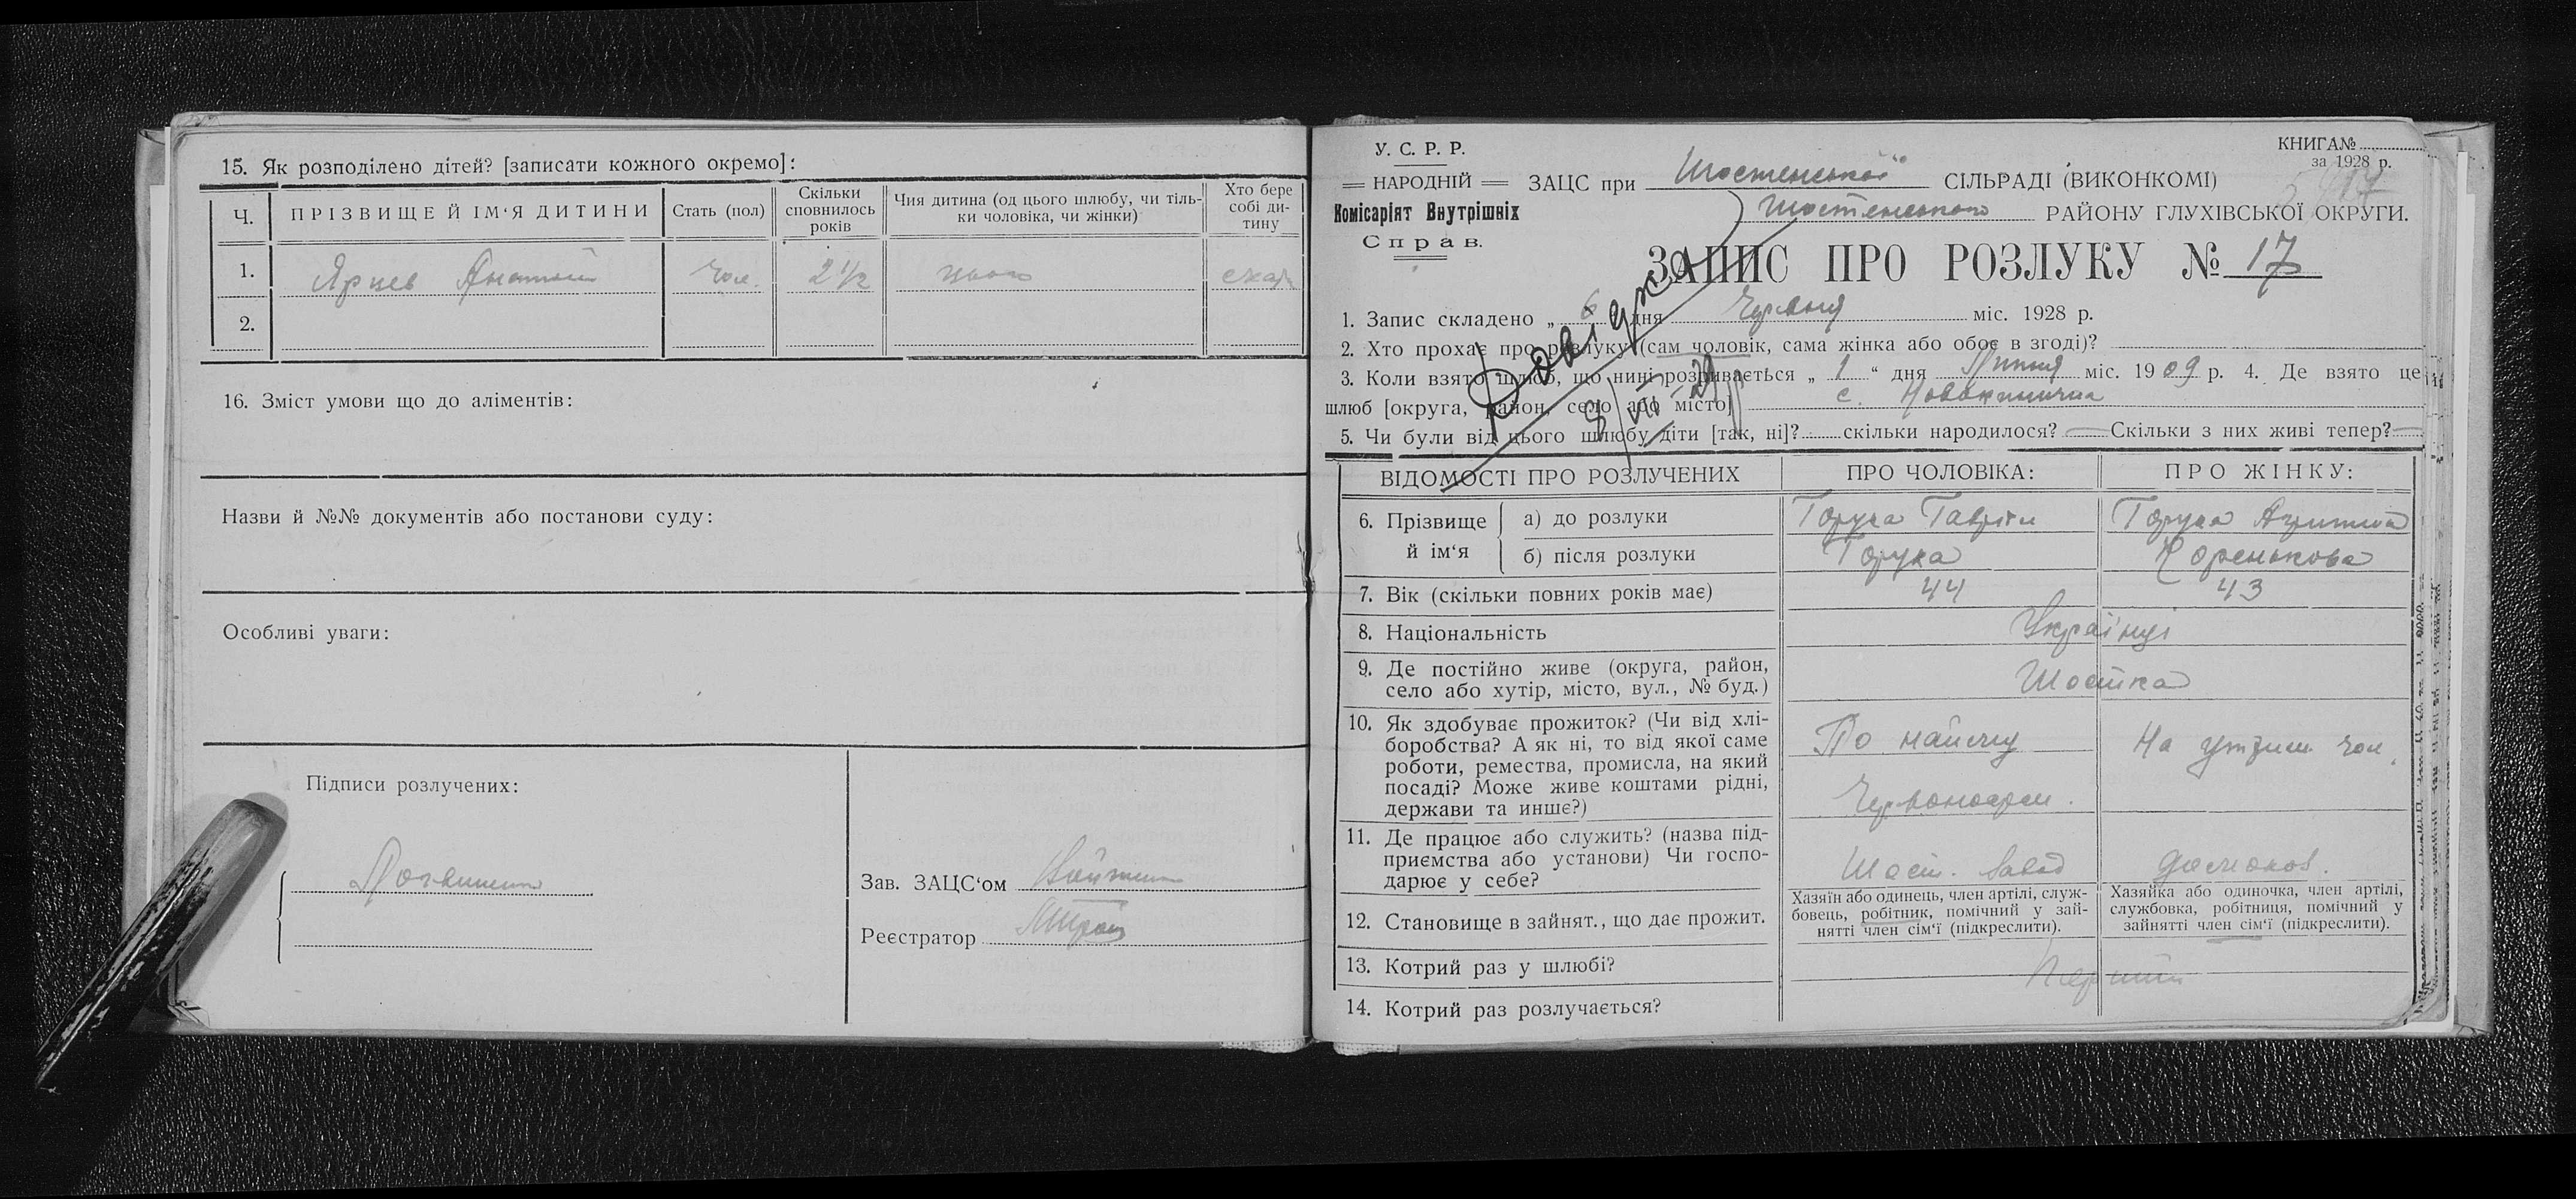 15. Як розподілено дітей? [записати кожного окремо]:
Ч. ПРІЗВИЩЕ Й ІМ‘Я ДИТИНИ Стать (пол) Скільки сповнилось років Чия дитина (од цього шлюбу, чи тіль- ки чоловіка, чи жінки) Хто бере собі ди- тину
1. Ярцев чол. 2 1/2
2.
16. Зміст умови що до аліментів:
Назви й №№ документів або постанови суду:
Особливі уваги:
Підписи розлучених:
Зав. ЗАЦС‘ом
Реєстратор
У. С. Р. Р.
НАРОДНІЙ
Комісаріят Внутрішніх
Справ.
КНИГА №
за 1928 р.
ЗАЦС при Шостенської СІЛЬРАДІ (ВИКОНКОМІ)
Шостенського РАЙОНУ ГЛУХІВСЬКОЇ ОКРУГИ.
ЗАПИС ПРО РОЗЛУКУ № 17
1. Запис складено „ 6 дня Червня міс. 1928 р.
2. Хто прохає про розлуку (сам чоловік, сама жінка або обоє в згоді)?
3. Коли взято шлюб, що нині розривається „ 1 “ дня Липня міс. 1909 р. 4. Де взято це
шлюб [округа, район, село або місто] с.
5. Чи були від цього шлюбу діти [так, ні]? скільки народилося? — Скільки з них живі тепер? —
ВІДОМОСТІ ПРО РОЗЛУЧЕНИХ ПРО ЧОЛОВІКА: ПРО ЖІНКУ:
6. Прізвище й ім‘я а) до розлуки Горука Гаврїл Горука
б) після розлуки Горука Коренькова
7. Вік (скільки повних років має) 44 43
8. Національність Українці
9. Де постійно живе (округа, район,
село або хутір, місто, вул., № буд.) Шостка
10. Як здобуває прожиток? (Чи від хлі-
боробства? А як ні, то від якої саме По найму На утрим. чол.
роботи, ремества, промисла, на який
посаді? Може живе коштами рідні,
держави та инше?)
11. Де працює або служить? (назва під-
приємства або установи) Чи госпо- Шост. завод домохов.
дарює у себе?
12. Становище в зайнят., що дає прожит.
Хазяїн або одинець, член артілі, служ-
бовець, робітник, помічний у зай-
нятті член сім‘ї (підкреслити).
Хазяйка або одиночка, член артілі,
службовка, робітниця, помічний у
зайнятті член сім‘ї (підкреслити).
13. Котрий раз у шлюбі? Перший
14. Котрий раз розлучається?